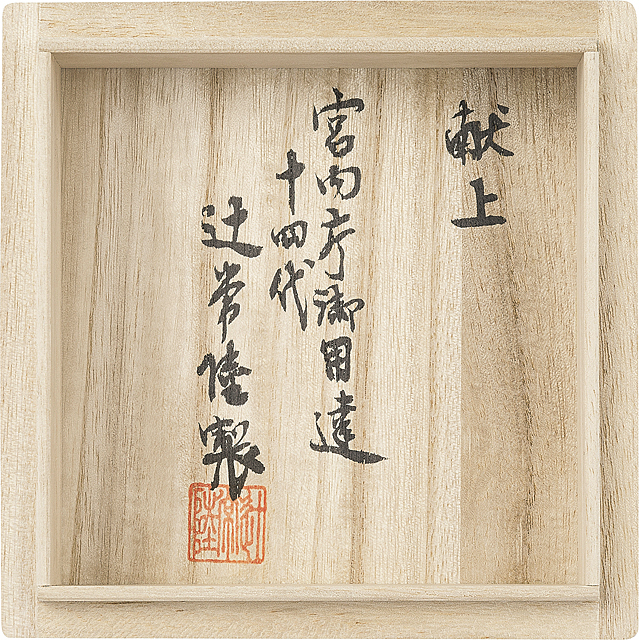 献上
宮内庁御用達
十四代
辻常陸製
辻常陸